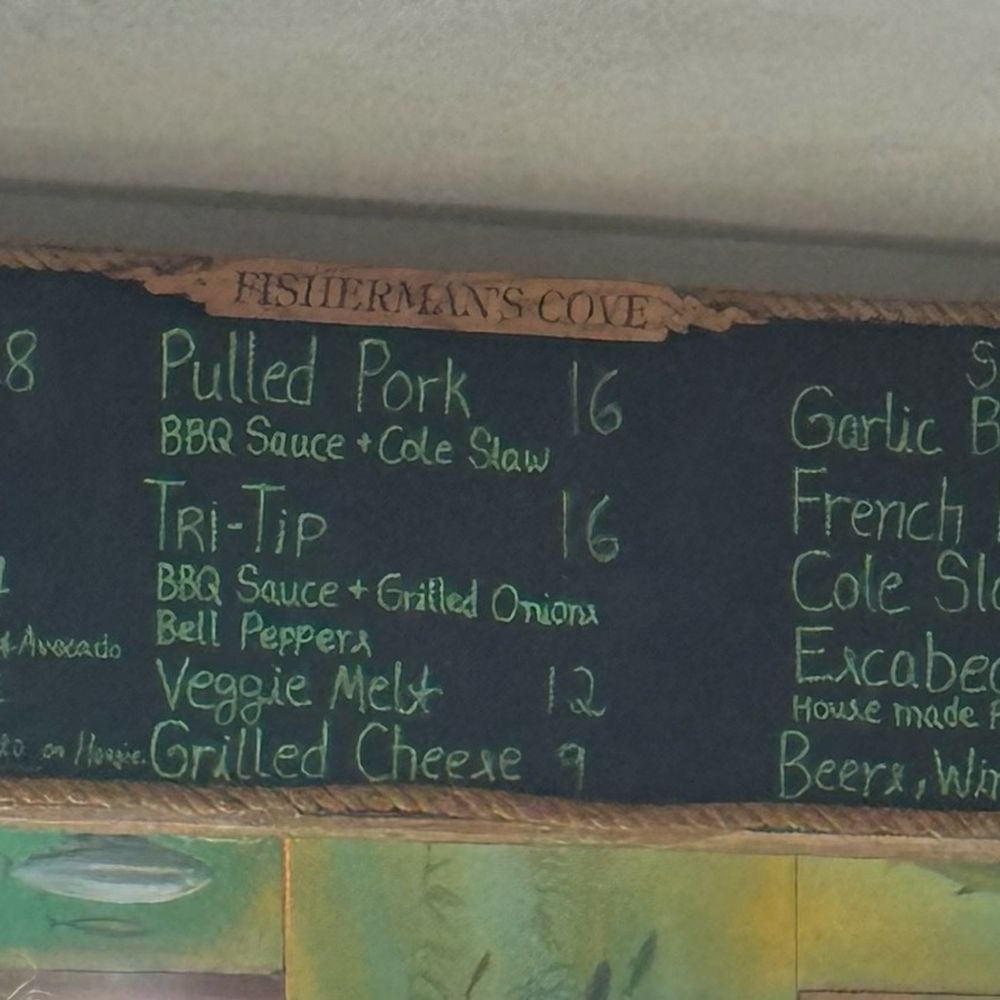 FISHERMAN'S COVE
8
Avocado
on Hoagie.
Pulled Pork 16
BBQ Sauce + Cole Slaw
TRI-TIP 16
BBQ Sauce + Grilled Onions
Bell Peppers
Veggie Melt 12
Grilled Cheese 9
S
Garlic B
French
Cole Sla
Escabec
House made
Beers, Win